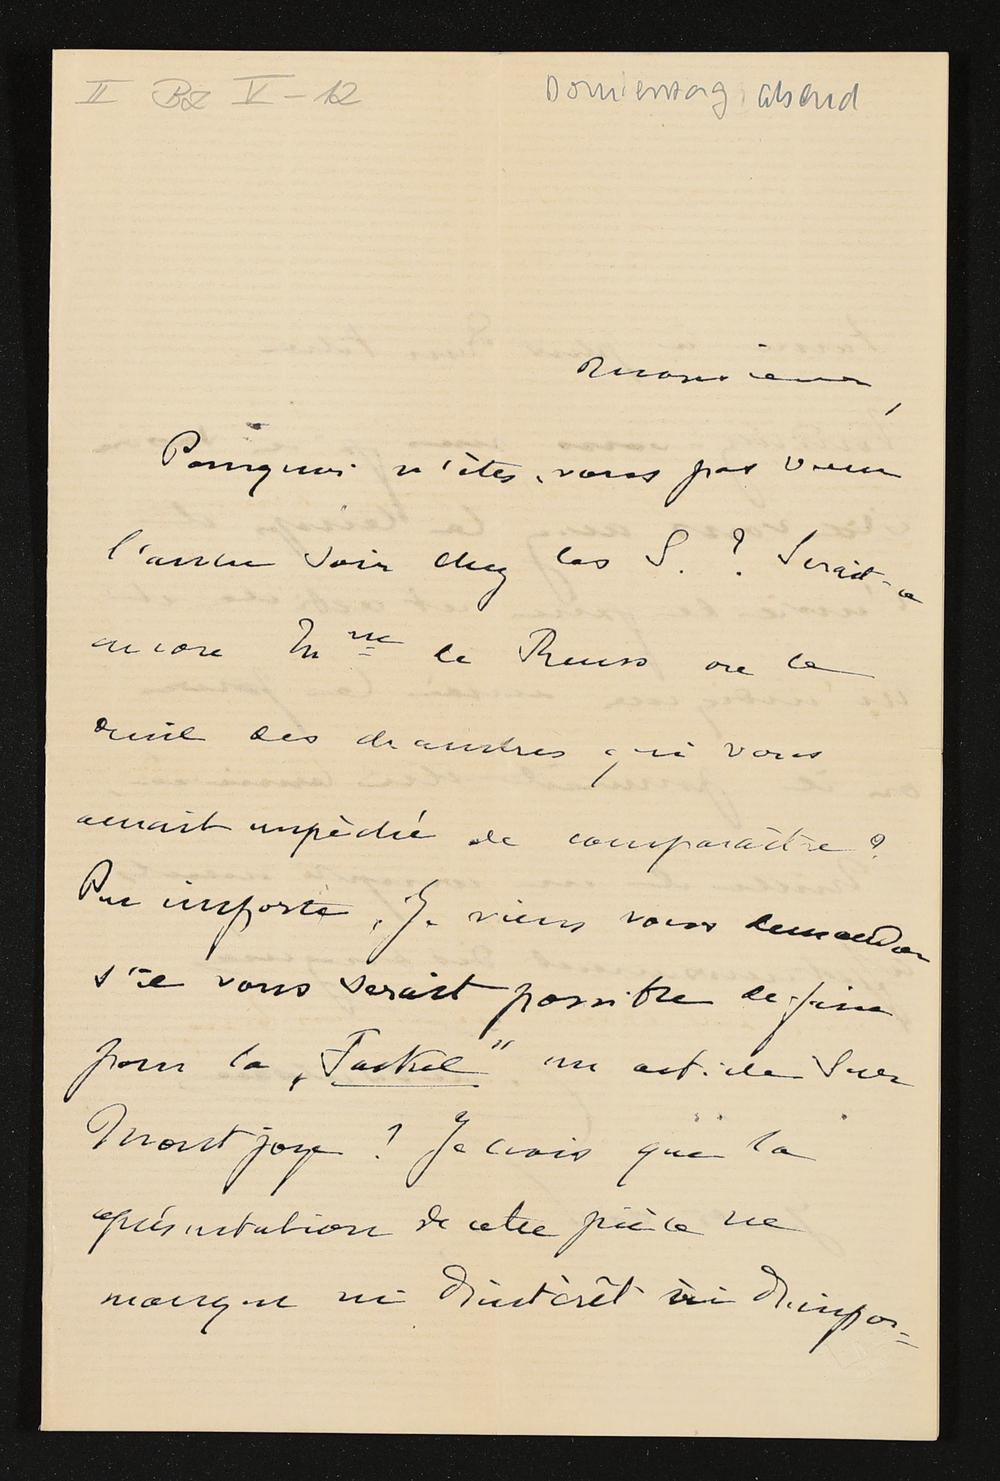 II BZ V-12
Donnerstag abend
Monsieur,
Pourquoi n'êtes-vous pas venu
l'autre soir chez les S. ? Serait-ce
encore Mme de Reuss ou le
deuil des qui vous
aurait empêché de comparaître ?
Peu importe. Je viens vous demander
s'il vous serait possible de faire
pour la „Fackel" un article sur
Montjoye ? Je crois que la
représentation de cette pièce ne
manque ni d'intérêt ni d'impor=